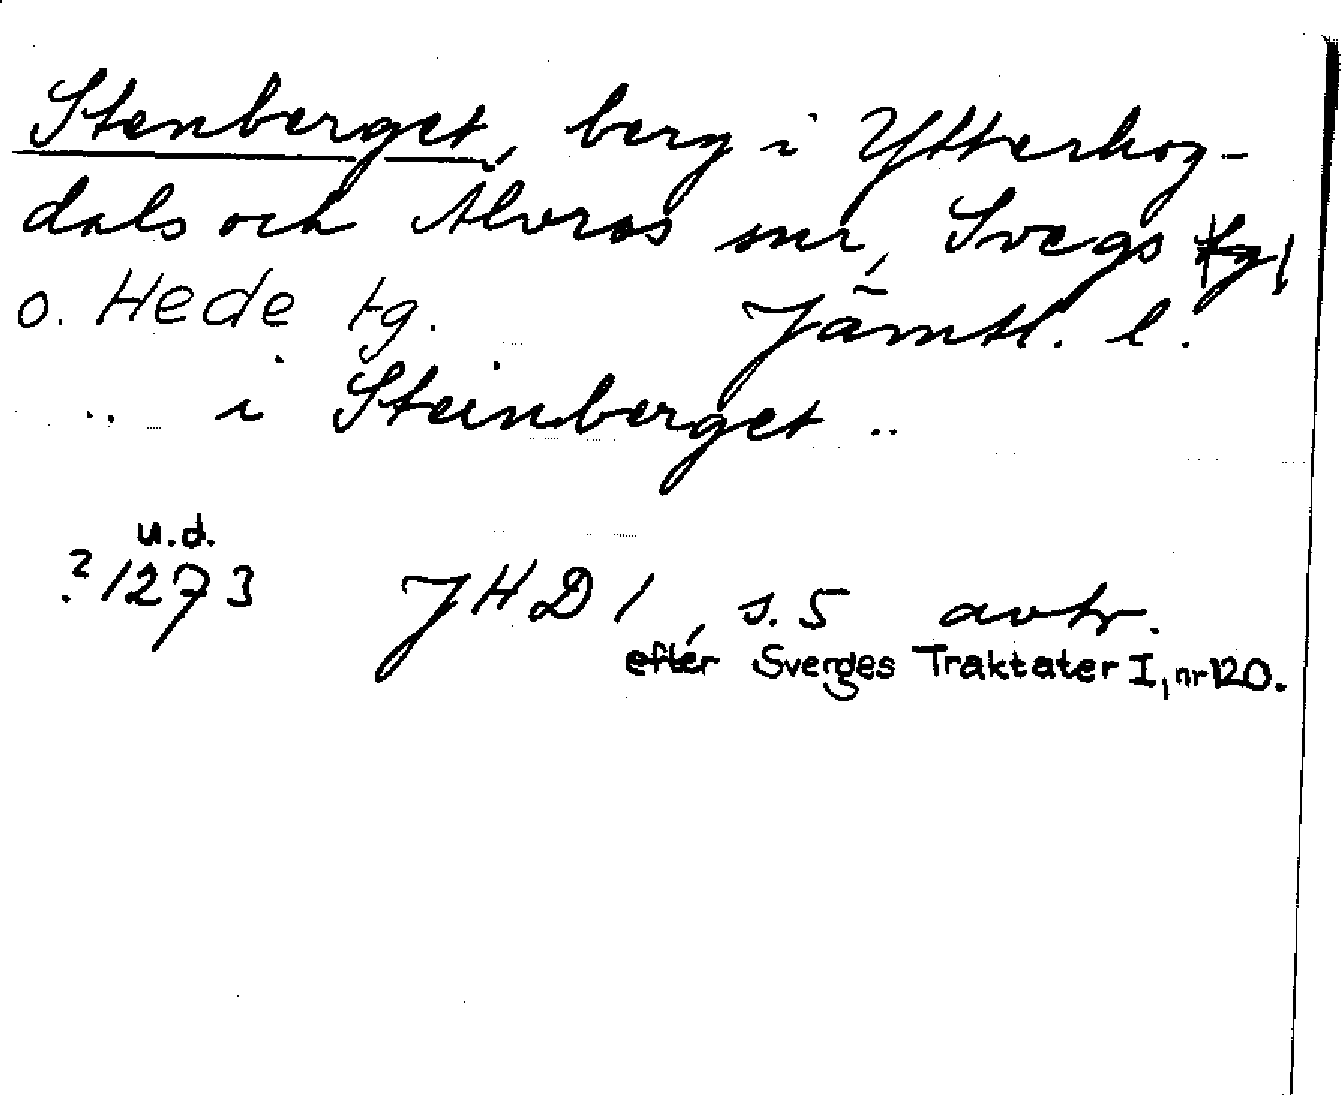 Stenberget, berg i Ytterhog-
dals och Älvros snr, Svegs tg,
o. Hede tg. Jämtl. l.
.. i Steinberget ..
u.d.
?1273 JHD 1, s. 5 avtr.
efter Sverges Traktater I, nr 120.